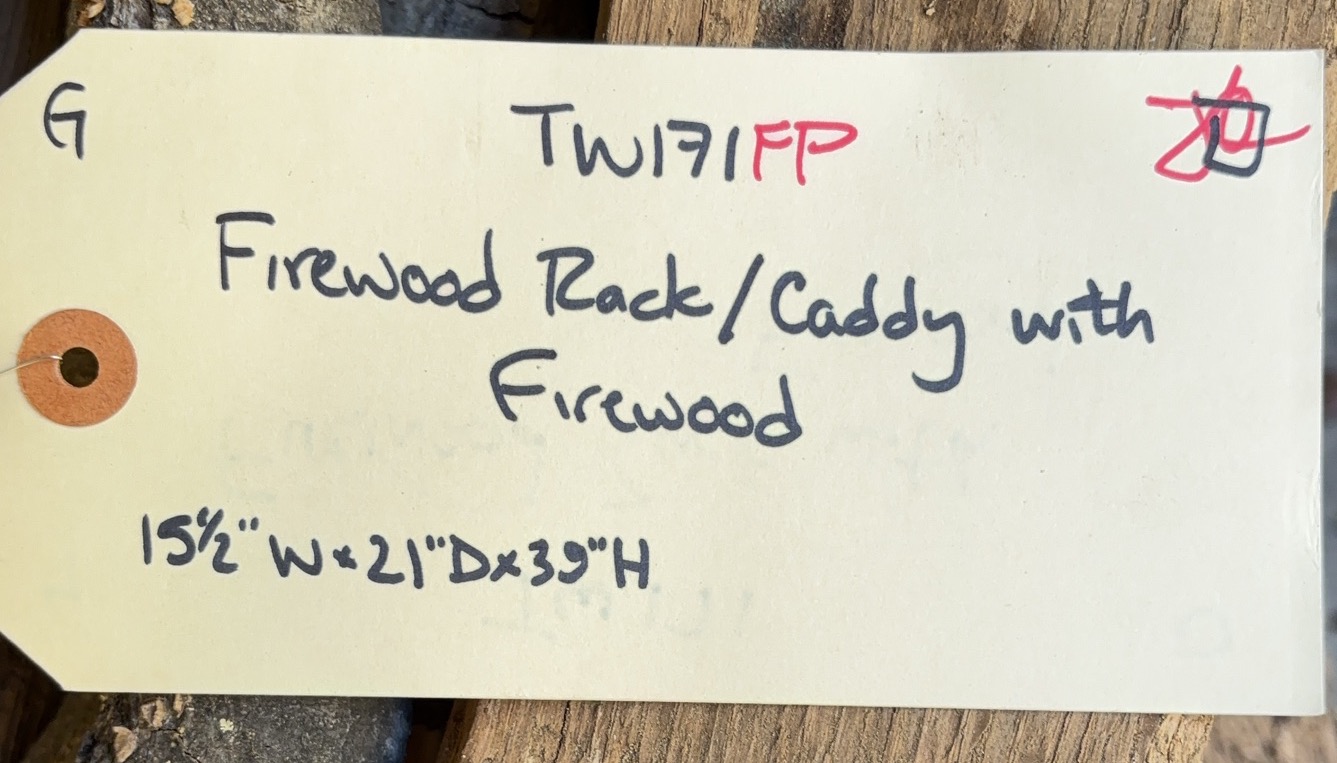 G
TW171FP
Firewood Rack/Caddy with
Firewood
15½" W x 21" D x 39" H